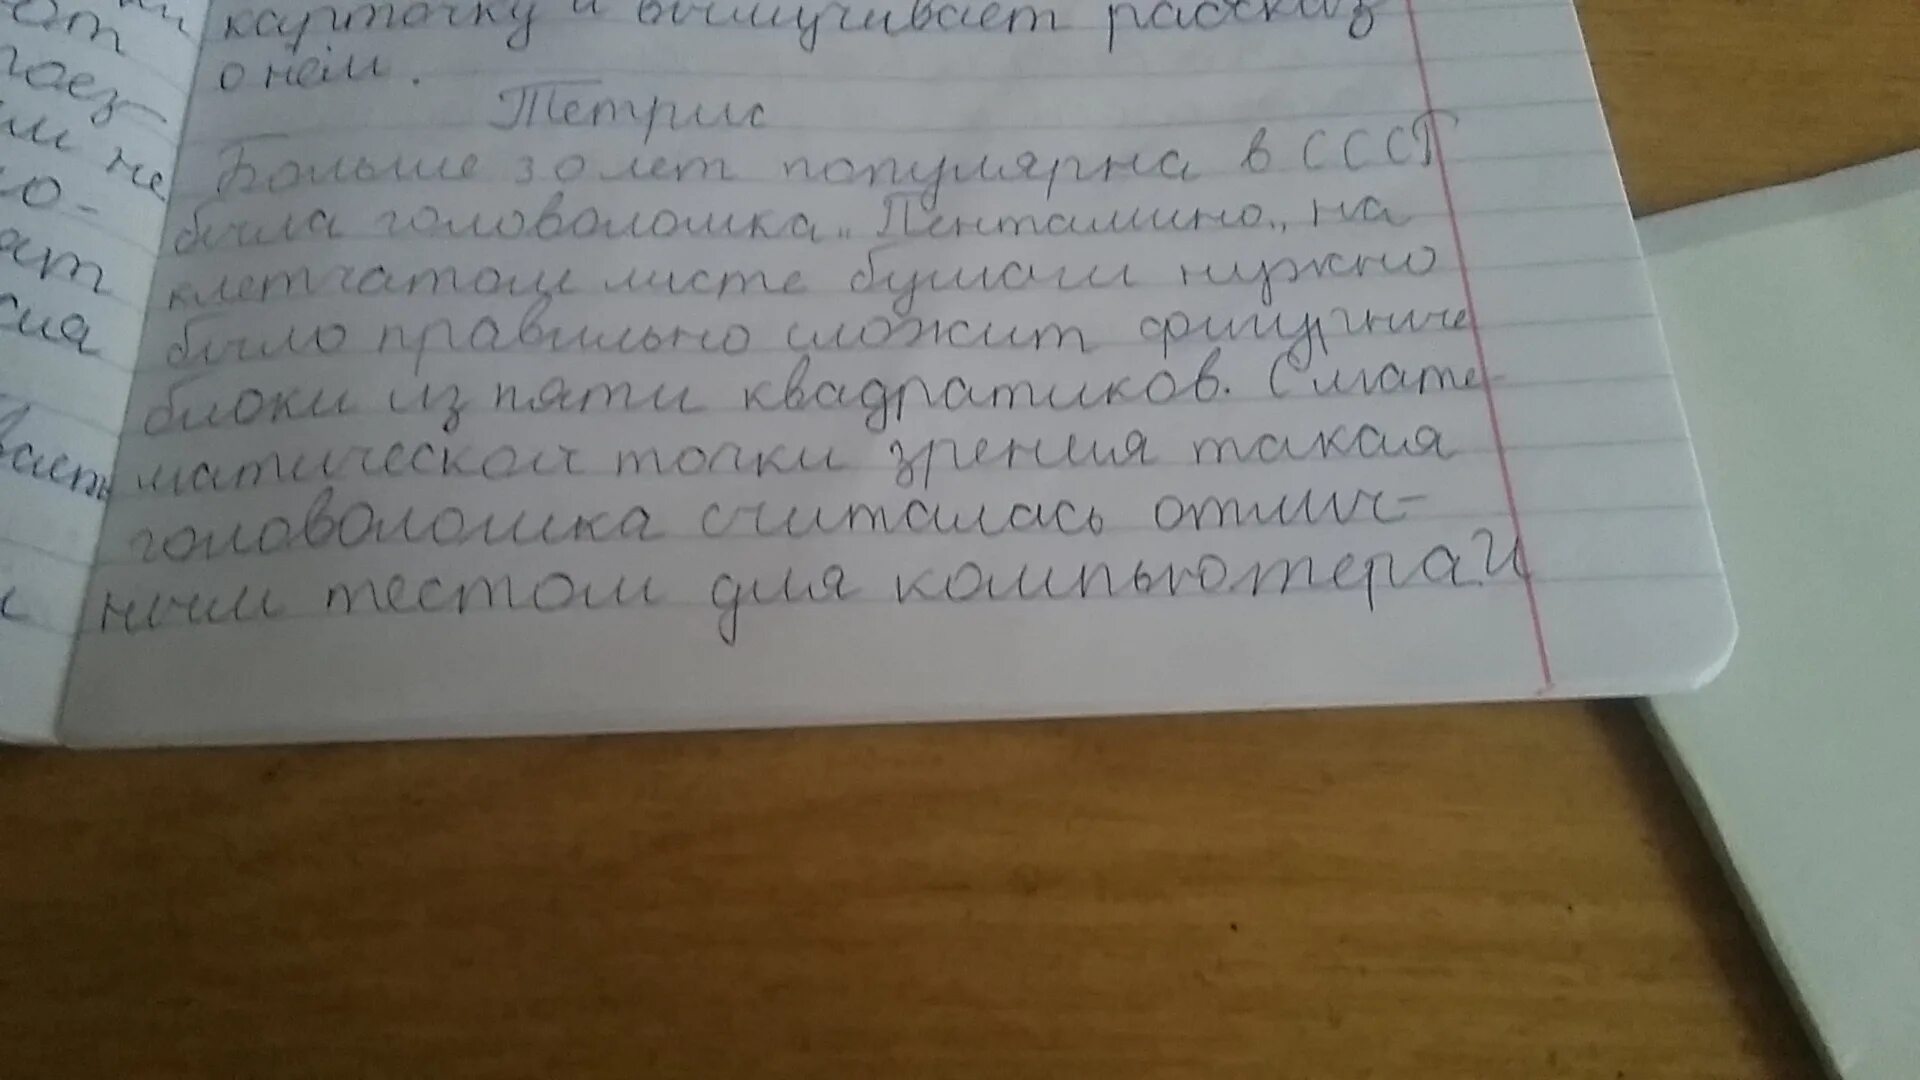 карточку и выучивает рассказ
о нём.
Тетрис
Больше 30 лет популярна в СССР
была головоломка „Пентамино„, на
клетчатом листе бумаги нужно
было правильно сложит фигурные
блоки из пяти квадратиков. С мате-
матической точки зрения такая
головоломка считалась отлич-
ным тестом для компьютера. И
ат
гаез-
ми не
ко-
ат
сия
вает